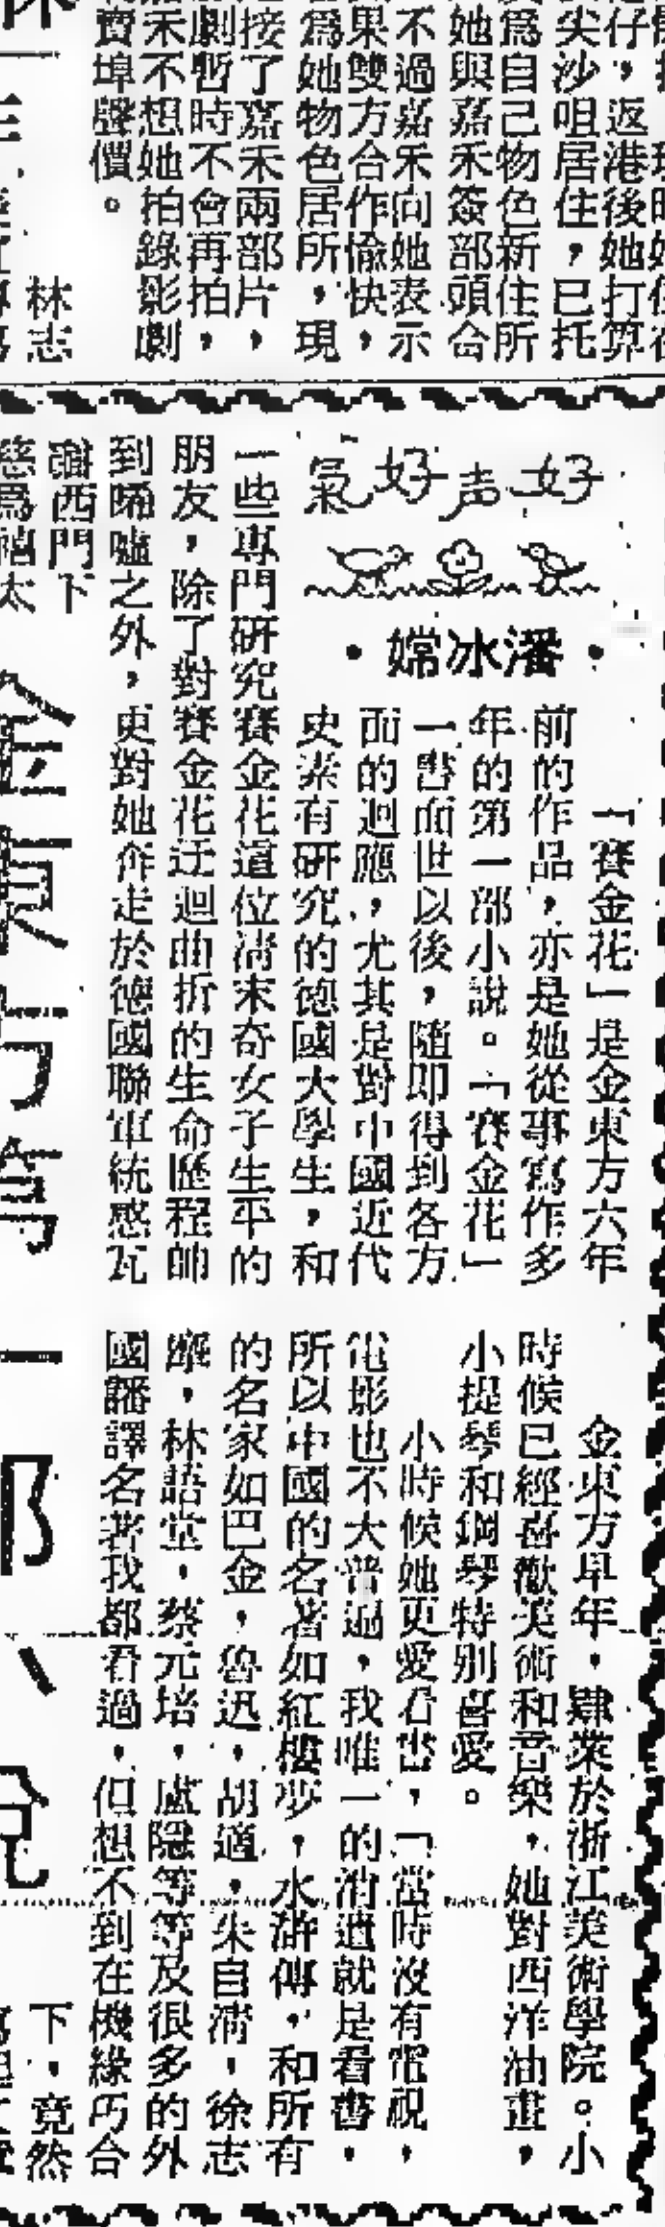 尖沙咀居住，已托
為自己物色新住所
她與嘉禾簽部頭合
不過嘉禾向她表示
果雙方合作愉快，
為她物色居所，現
接了嘉禾兩部片，
劇暫時不會再拍，
禾不想她拍錄影劇
賣埠聲價。
林志
好声好氣
•潘冰嫦•
「賽金花」是金東方六年
前的作品，亦是她從事寫作多
年的第一部小說。「賽金花」
一書面世以後，隨即得到各方
面的迴應，尤其是對中國近代
史素有研究的德國大學生，和
一些專門研究賽金花這位清末奇女子生平的
朋友，除了對賽金花迂迴曲折的生命歷程帥
到唏噓之外，更對她奔走於德國聯軍統惑瓦
謝西門下
金東方早年，肄業於浙江美術學院。小
時候已經喜歡美術和音樂，她對西洋油畫，
小提琴和鋼琴特別喜愛。
小時候她更愛看書，「當時沒有電視，
電影也不大普遍，我唯一的消遣就是看書，
所以中國的名著如紅樓夢，水滸傳，和所有
的名家如巴金，魯迅，胡適，朱自清，徐志
摩，林語堂，蔡元培，盧隱等等及很多的外
國譯名著我都看過，但想不到在機緣巧合
下，竟然